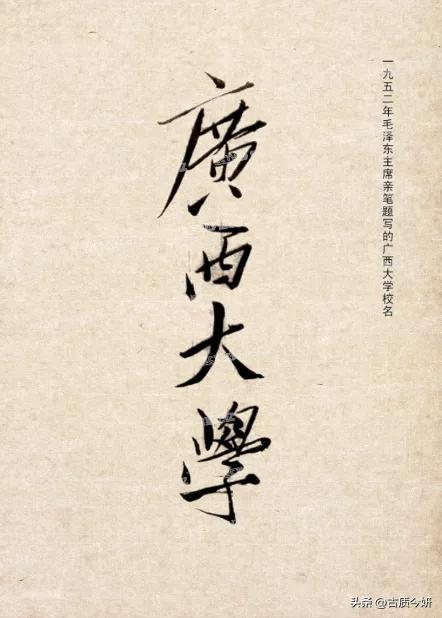 一九五二年毛泽东主席亲笔题写的广西大学校名
廣西大學
头条 @古质今妍